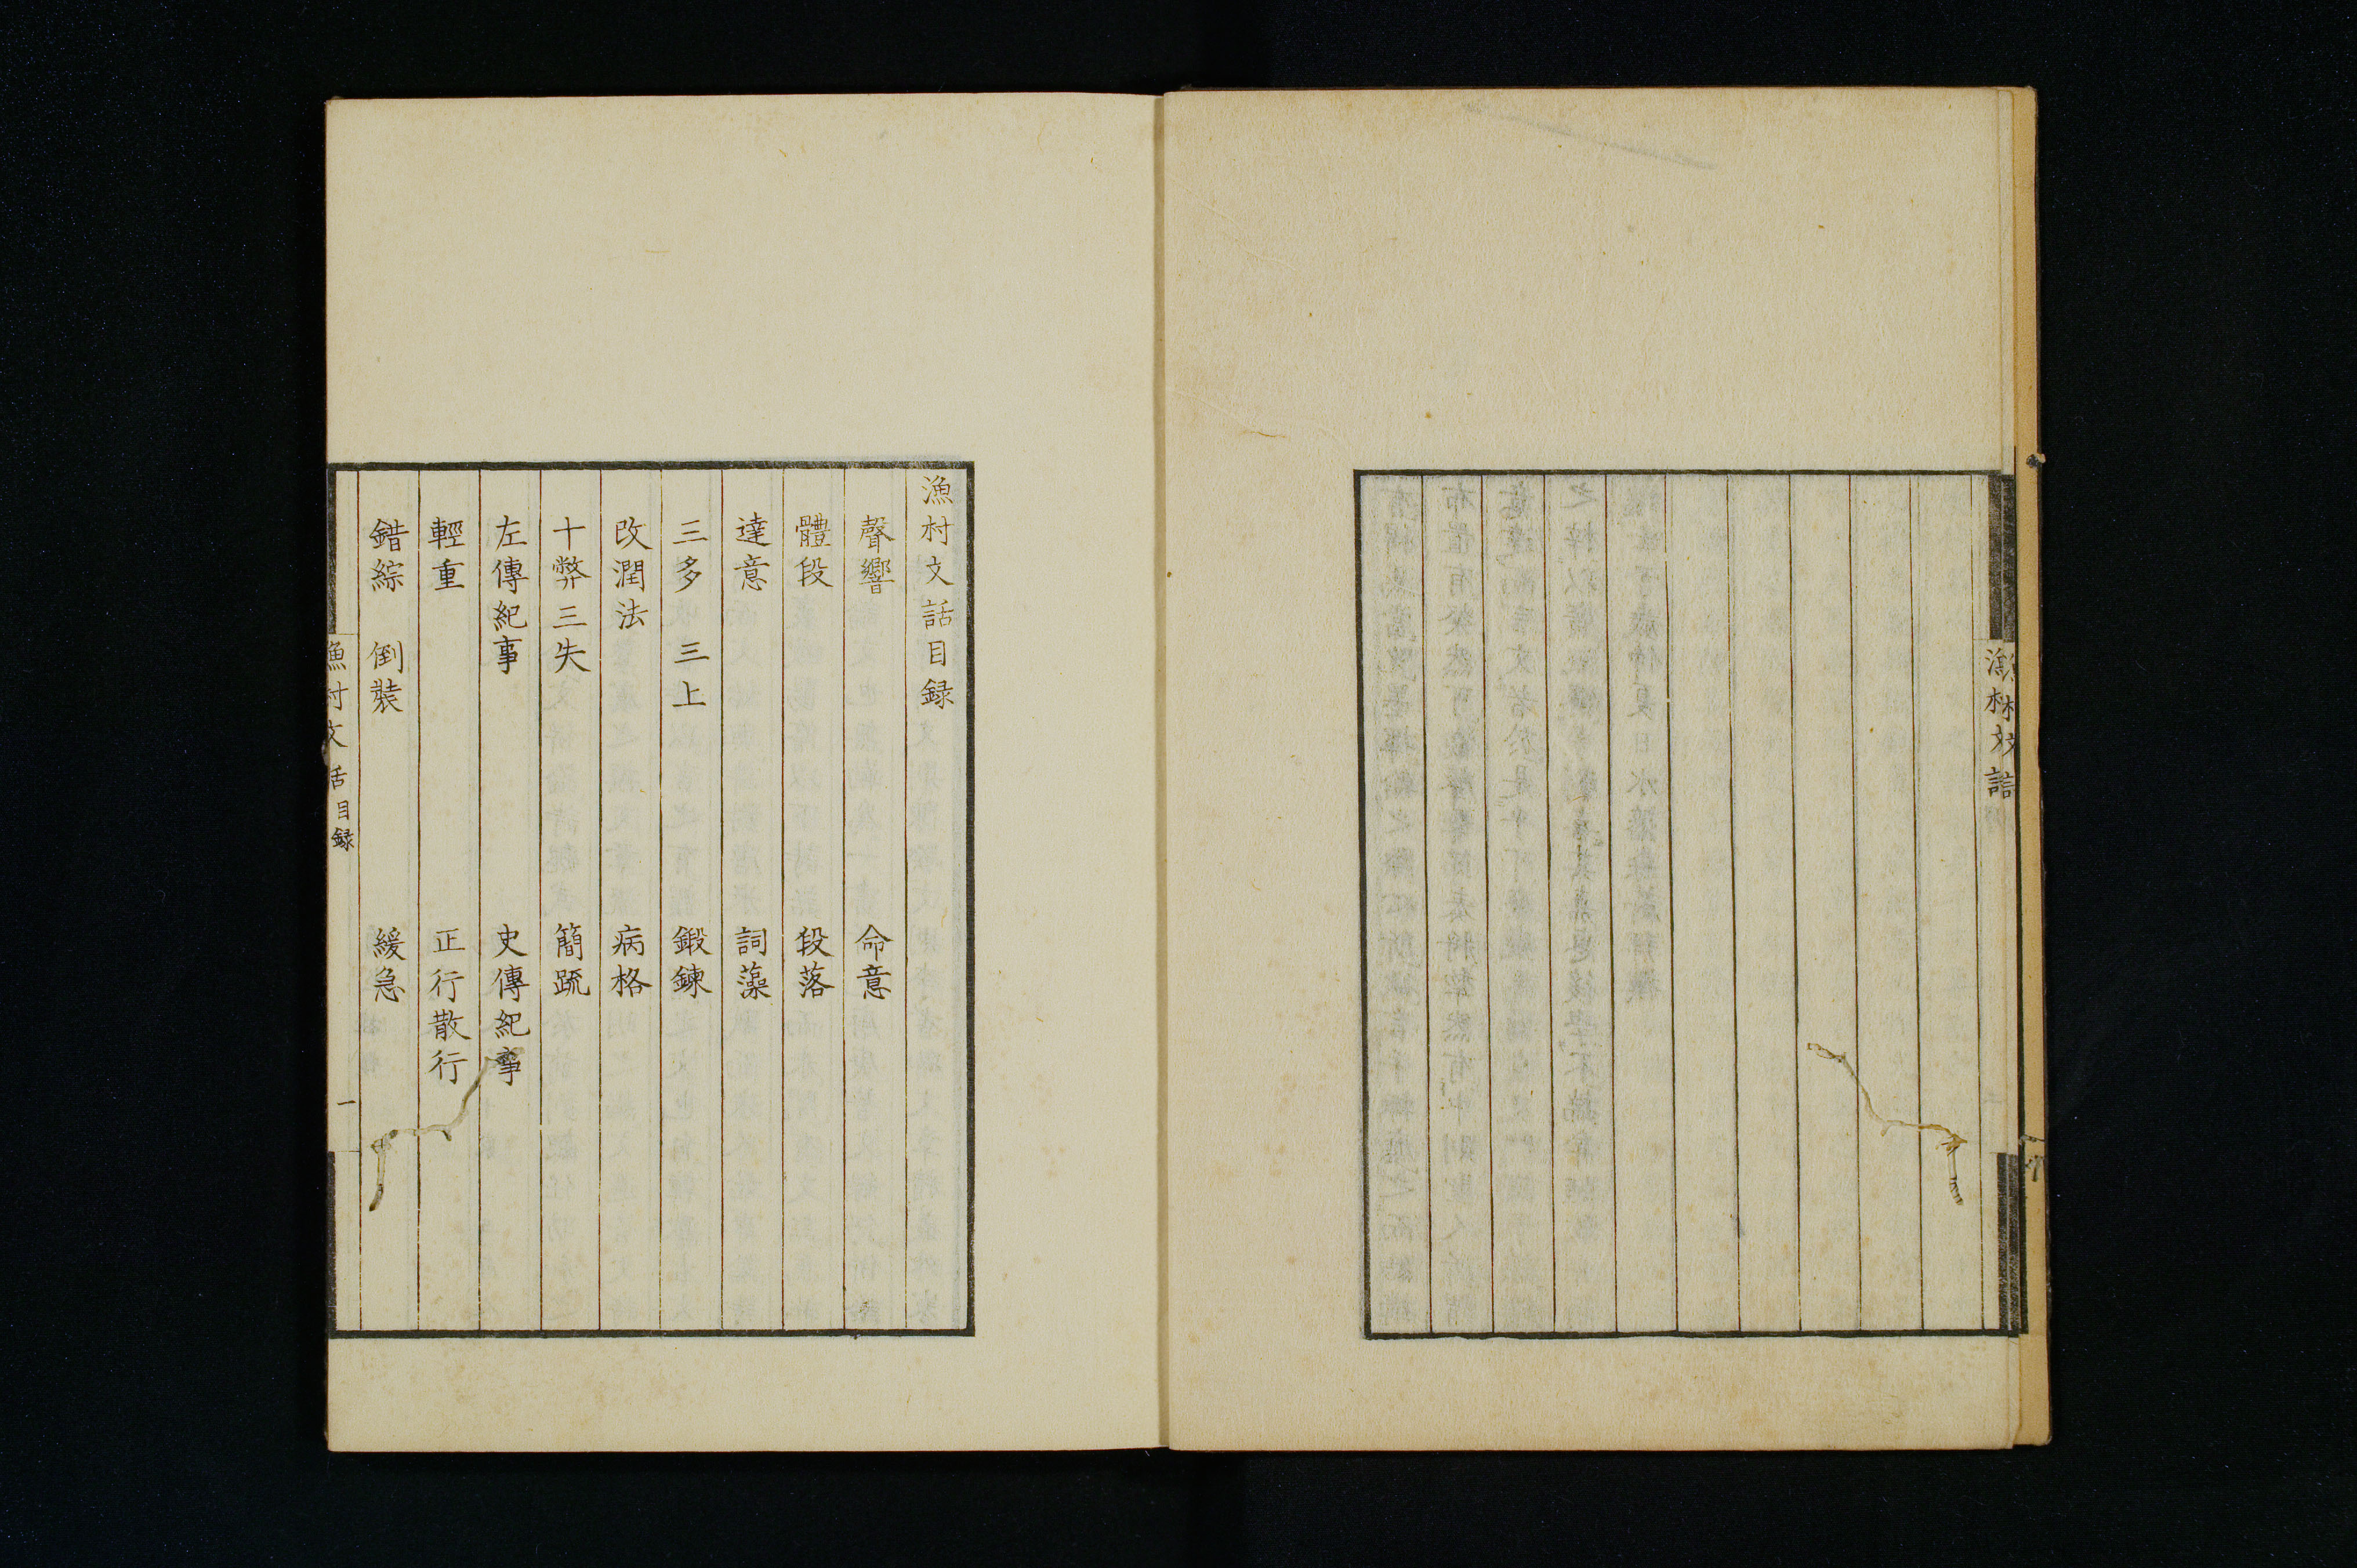 漁村文話
漁村文話目録
聲響 命意
體段 段落
達意 詞藻
三多 三上 鍛鍊
改潤法 病格
十弊三失 簡疏
左傳紀事 史傳紀事
輕重 正行散行
錯綜 倒裝 緩急
漁村文話目録 一